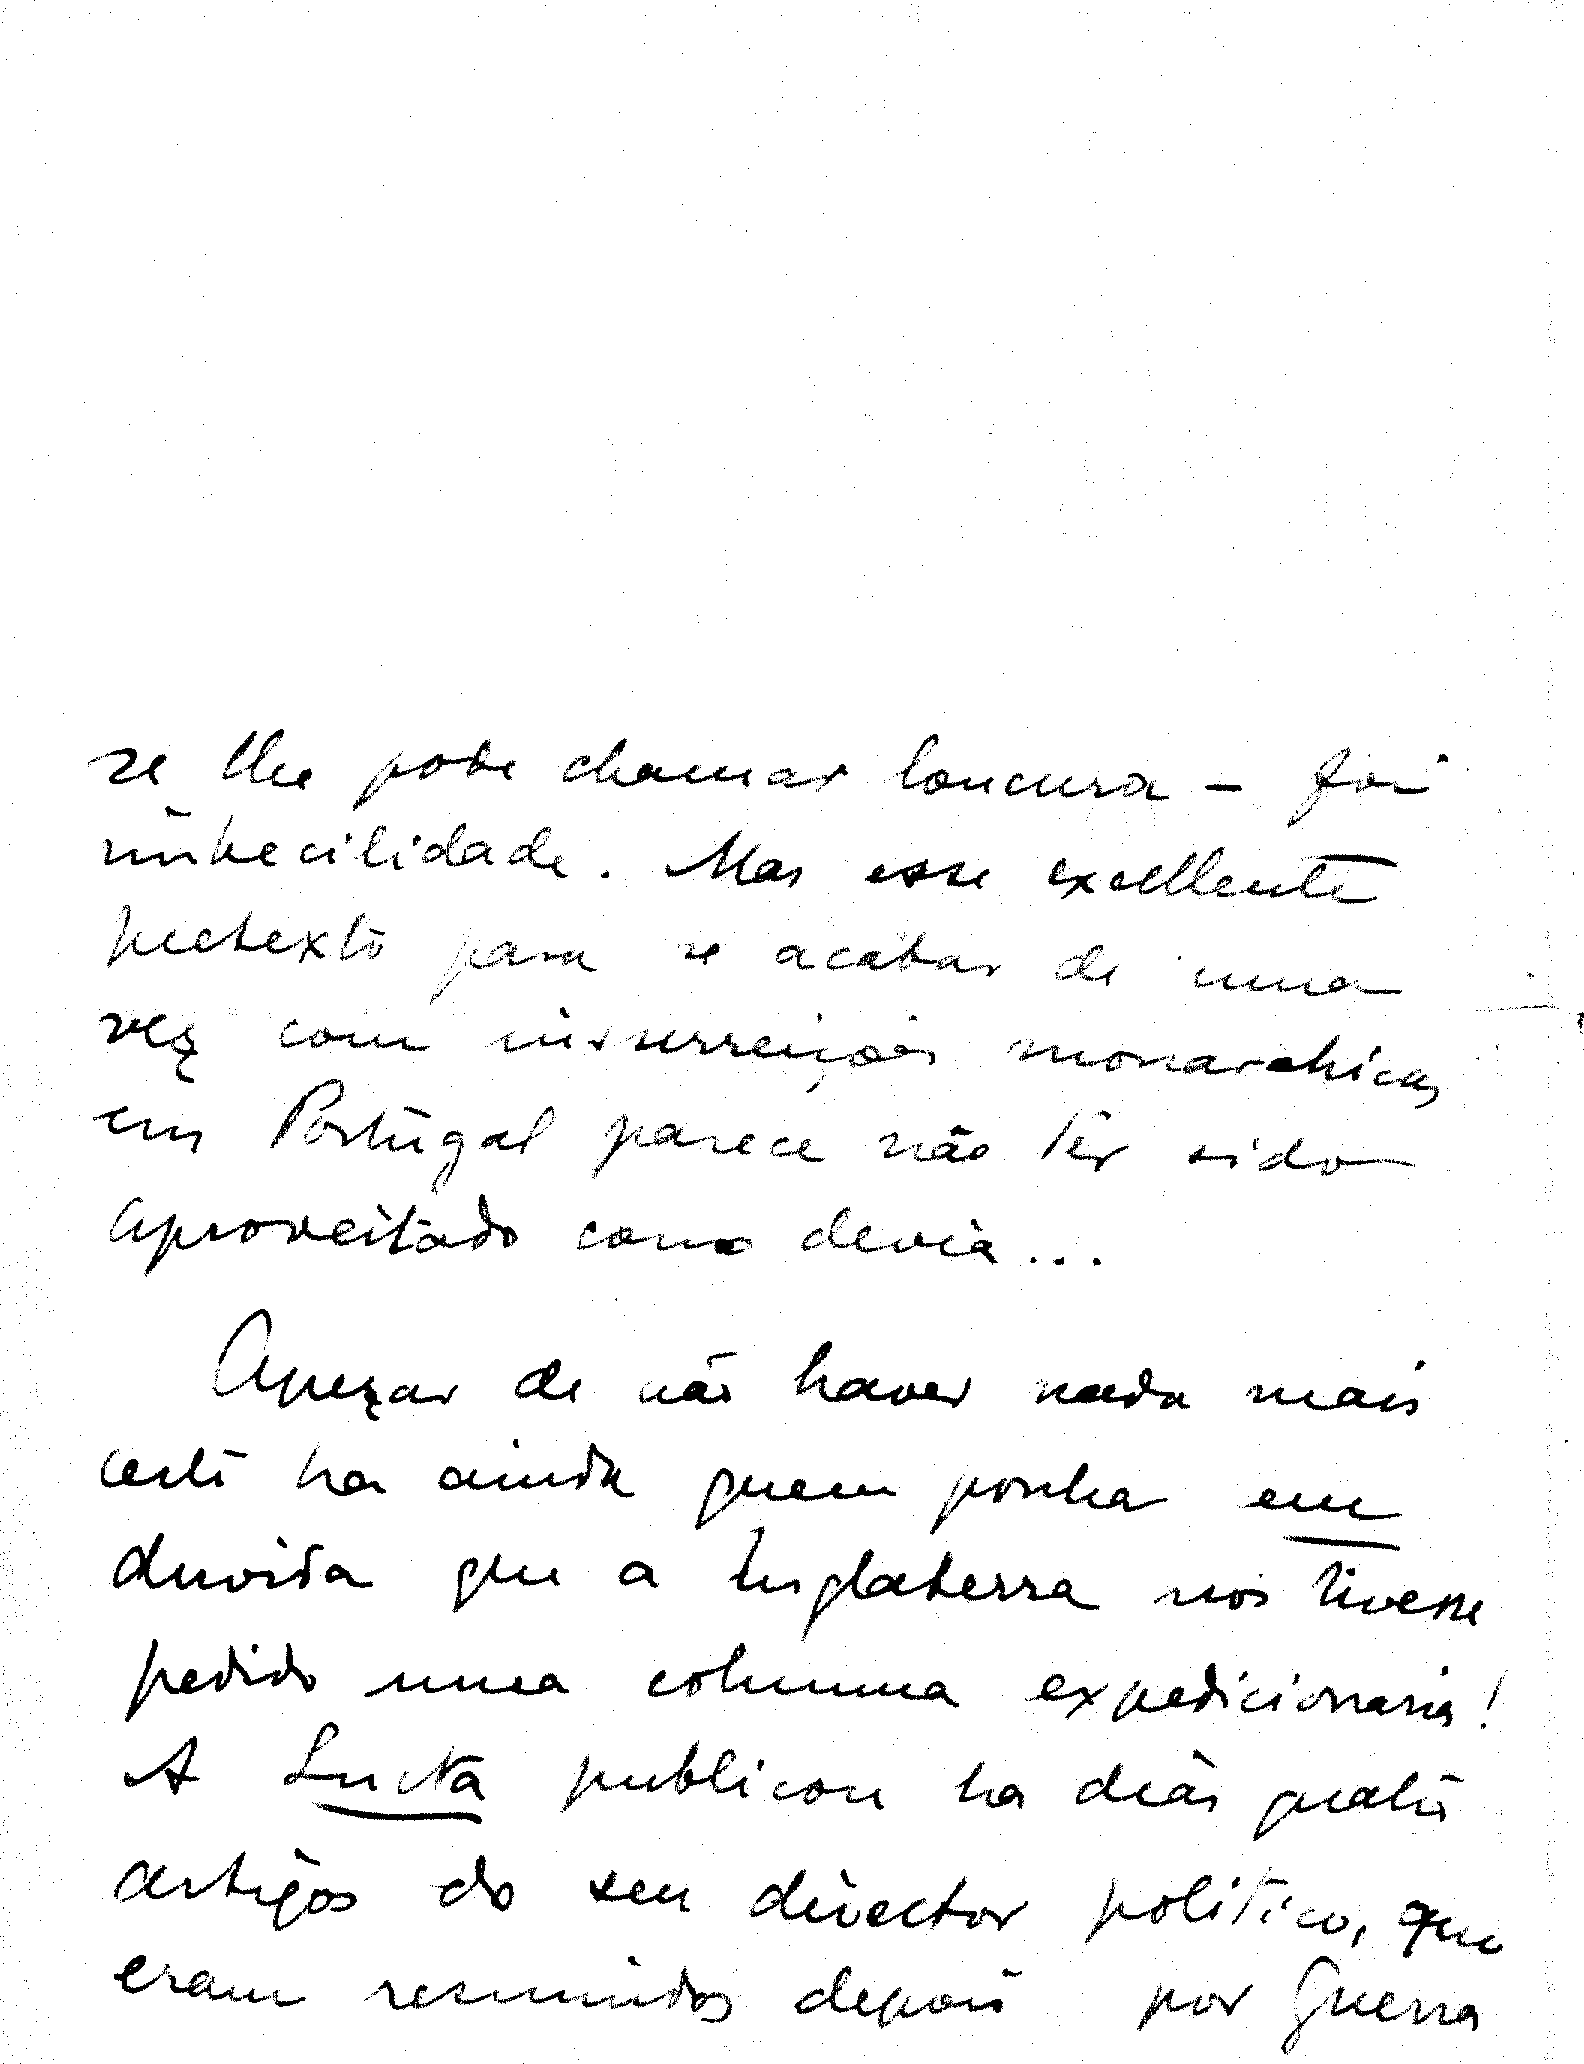 se lhe pode chamar loucura – foi
imbecilidade. Mas esse excellente
pretexto para se acabar de uma
vez com insurreições monarchicas
em Portugal parece não ter sido
aproveitado como devia...
Apezar de não haver nada mais
certo ha ainda quem ponha em
duvida que a Inglaterra nos tivesse
pedido uma columna expedicionaria!
A Lucta publicou ha dias quatro
artigos do seu director politico, que
eram resumidos depois por Guerra